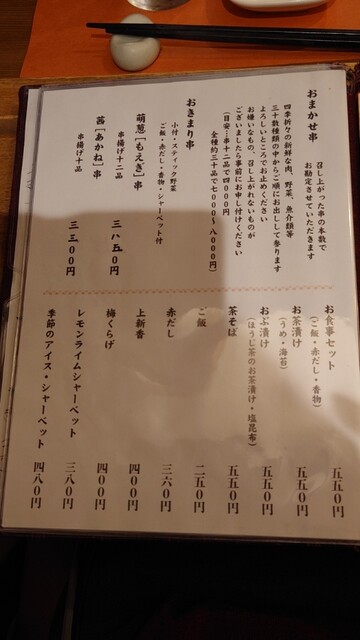 おまかせ串
召し上がった串の本数で
お勘定させていただきます
四季折々の新鮮な肉、野菜、魚介類等
三十数種類の中からご順にお出しして参ります
よろしいところでお止めください
お嫌いなもの、召し上がれないものが
ございましたら事前にお申し付けください
（目安…串十二品で四〇〇〇円
全種約三十品で七〇〇〇～八〇〇〇円）
おきまり串
小付・スティック野菜
ご飯・赤だし・香物・シャーベット付
萌葱［もえぎ］串
串揚げ十二品
三八五〇円
茜［あかね］串
串揚げ十品
三三〇〇円
お食事セット
（ご飯・赤だし・香物）
五五〇円
お茶漬け
（うめ・海苔）
五五〇円
おぶ漬け
（ほうじ茶のお茶漬け・塩昆布）
五五〇円
茶そば
五五〇円
ご飯
二五〇円
赤だし
三六〇円
上新香
四〇〇円
梅くらげ
四〇〇円
レモンライムシャーベット
三八〇円
季節のアイス・シャーベット
四八〇円